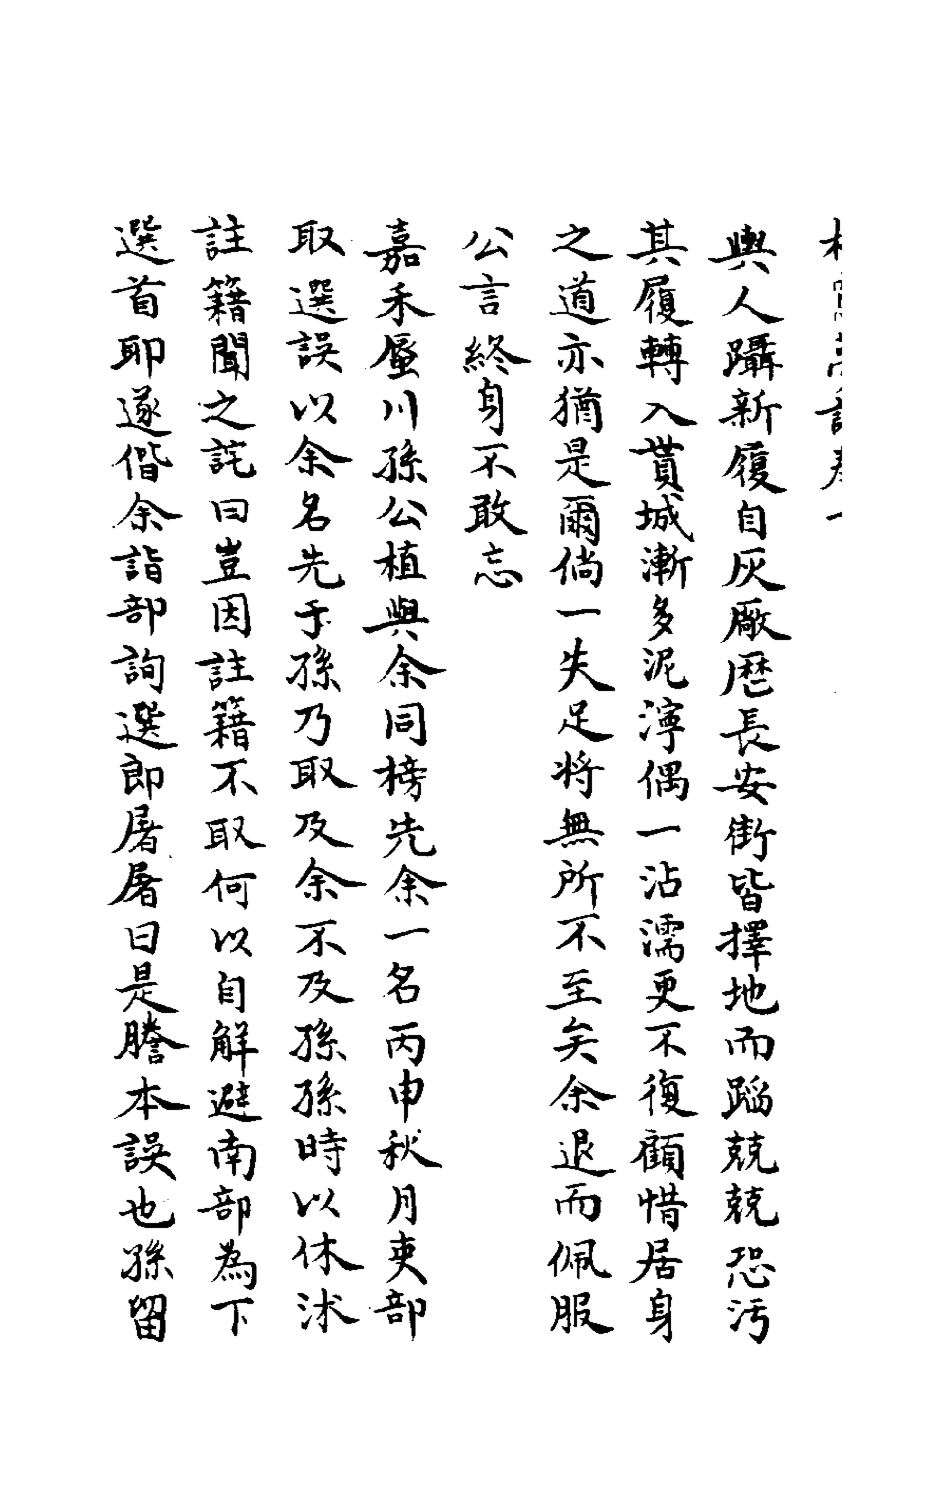 松窗夢語卷一
輿人躡新履自灰厰歷長安街皆擇地而蹈兢兢恐污
其履轉入貰城漸多泥濘偶一沾濡更不復顧惜居身
之道亦猶是爾倘一失足將無所不至矣余退而佩服
公言終身不敢忘
嘉禾蜃川孫公植與余同榜先余一名丙申秋月吏部
取選誤以余名先于孫乃取及余不及孫孫時以休沭
註籍聞之詫曰豈因註籍不取何以自解避南部為下
選首耶遂偕余詣部詢選郎屠屠曰是謄本誤也孫留